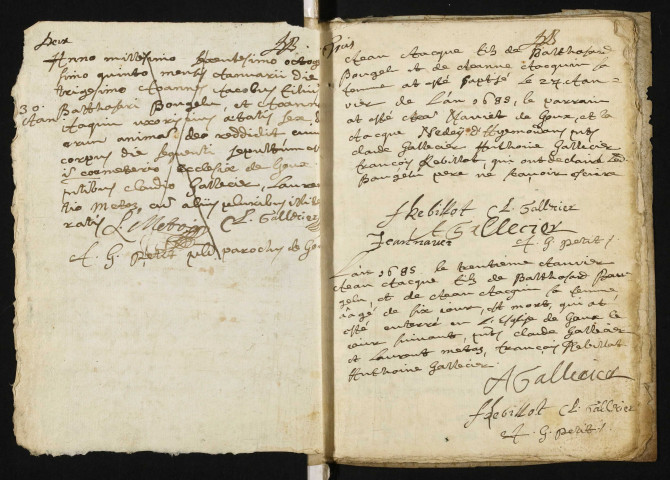 Deux
Anno millesimo sexcentesimo octog
simo quinto mensis Januarii die
trigesimo Joannes Jacobus filius
30. Balthasari Bougelu, et Joannæ
Jan Jaquin uxoris ætatis sex d
erum animam deo reddidit cuius
corpus die sequenti sepultum est
in cœmeterio ecclesiæ de Goux
tibus Claudio Gallecier, Lauren
tio metoz cum aliis pluribus illite
ratis
L. Metoz C. Gallecier
A. G. Petit parochus de Gou
Trois
Jean Jacque fils de Balthasard
Bougelu et de Jeanne Jacquin sa
femme at esté baptisé le 27 Jan=
vier de l'an 1685, le parrain
at esté Jean Naviet de Goux, et la
claude Gallecier Anthoine Gallecier
françois Rebillot, qui ont declaré led
Bougelu pere ne sçavoir escrire
f Rebillot C. Gallecier
A Gallecier
Jean naviet A. G. petit
L'an 1685. le trentieme Janvier
Jean Jacque fils de Balthasard Bou
gelu, et de Jeanne Jacquin sa femme,
aagé de six jour, est mort, qui at
esté enterré en l'Eglise de Goux le
jour suivant, claude Gallecier
et Laurent metoz, françois Rebillot
Anthoine Gallecier
A Gallecier
f Rebillot C. Gallecier
A. G. petit